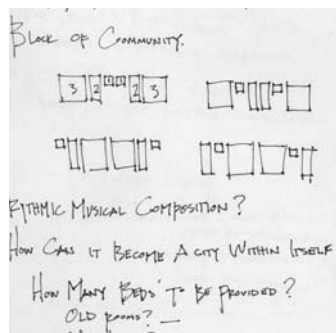 BLOCK OF COMMUNITY.
3 2 1 1 2 3
RYTHMIC MUSICAL COMPOSITION?
HOW CAN IT BECOME A CITY WITHIN ITSELF
HOW MANY BEDS' TO BE PROVIDED?
OLD ROOMS? —